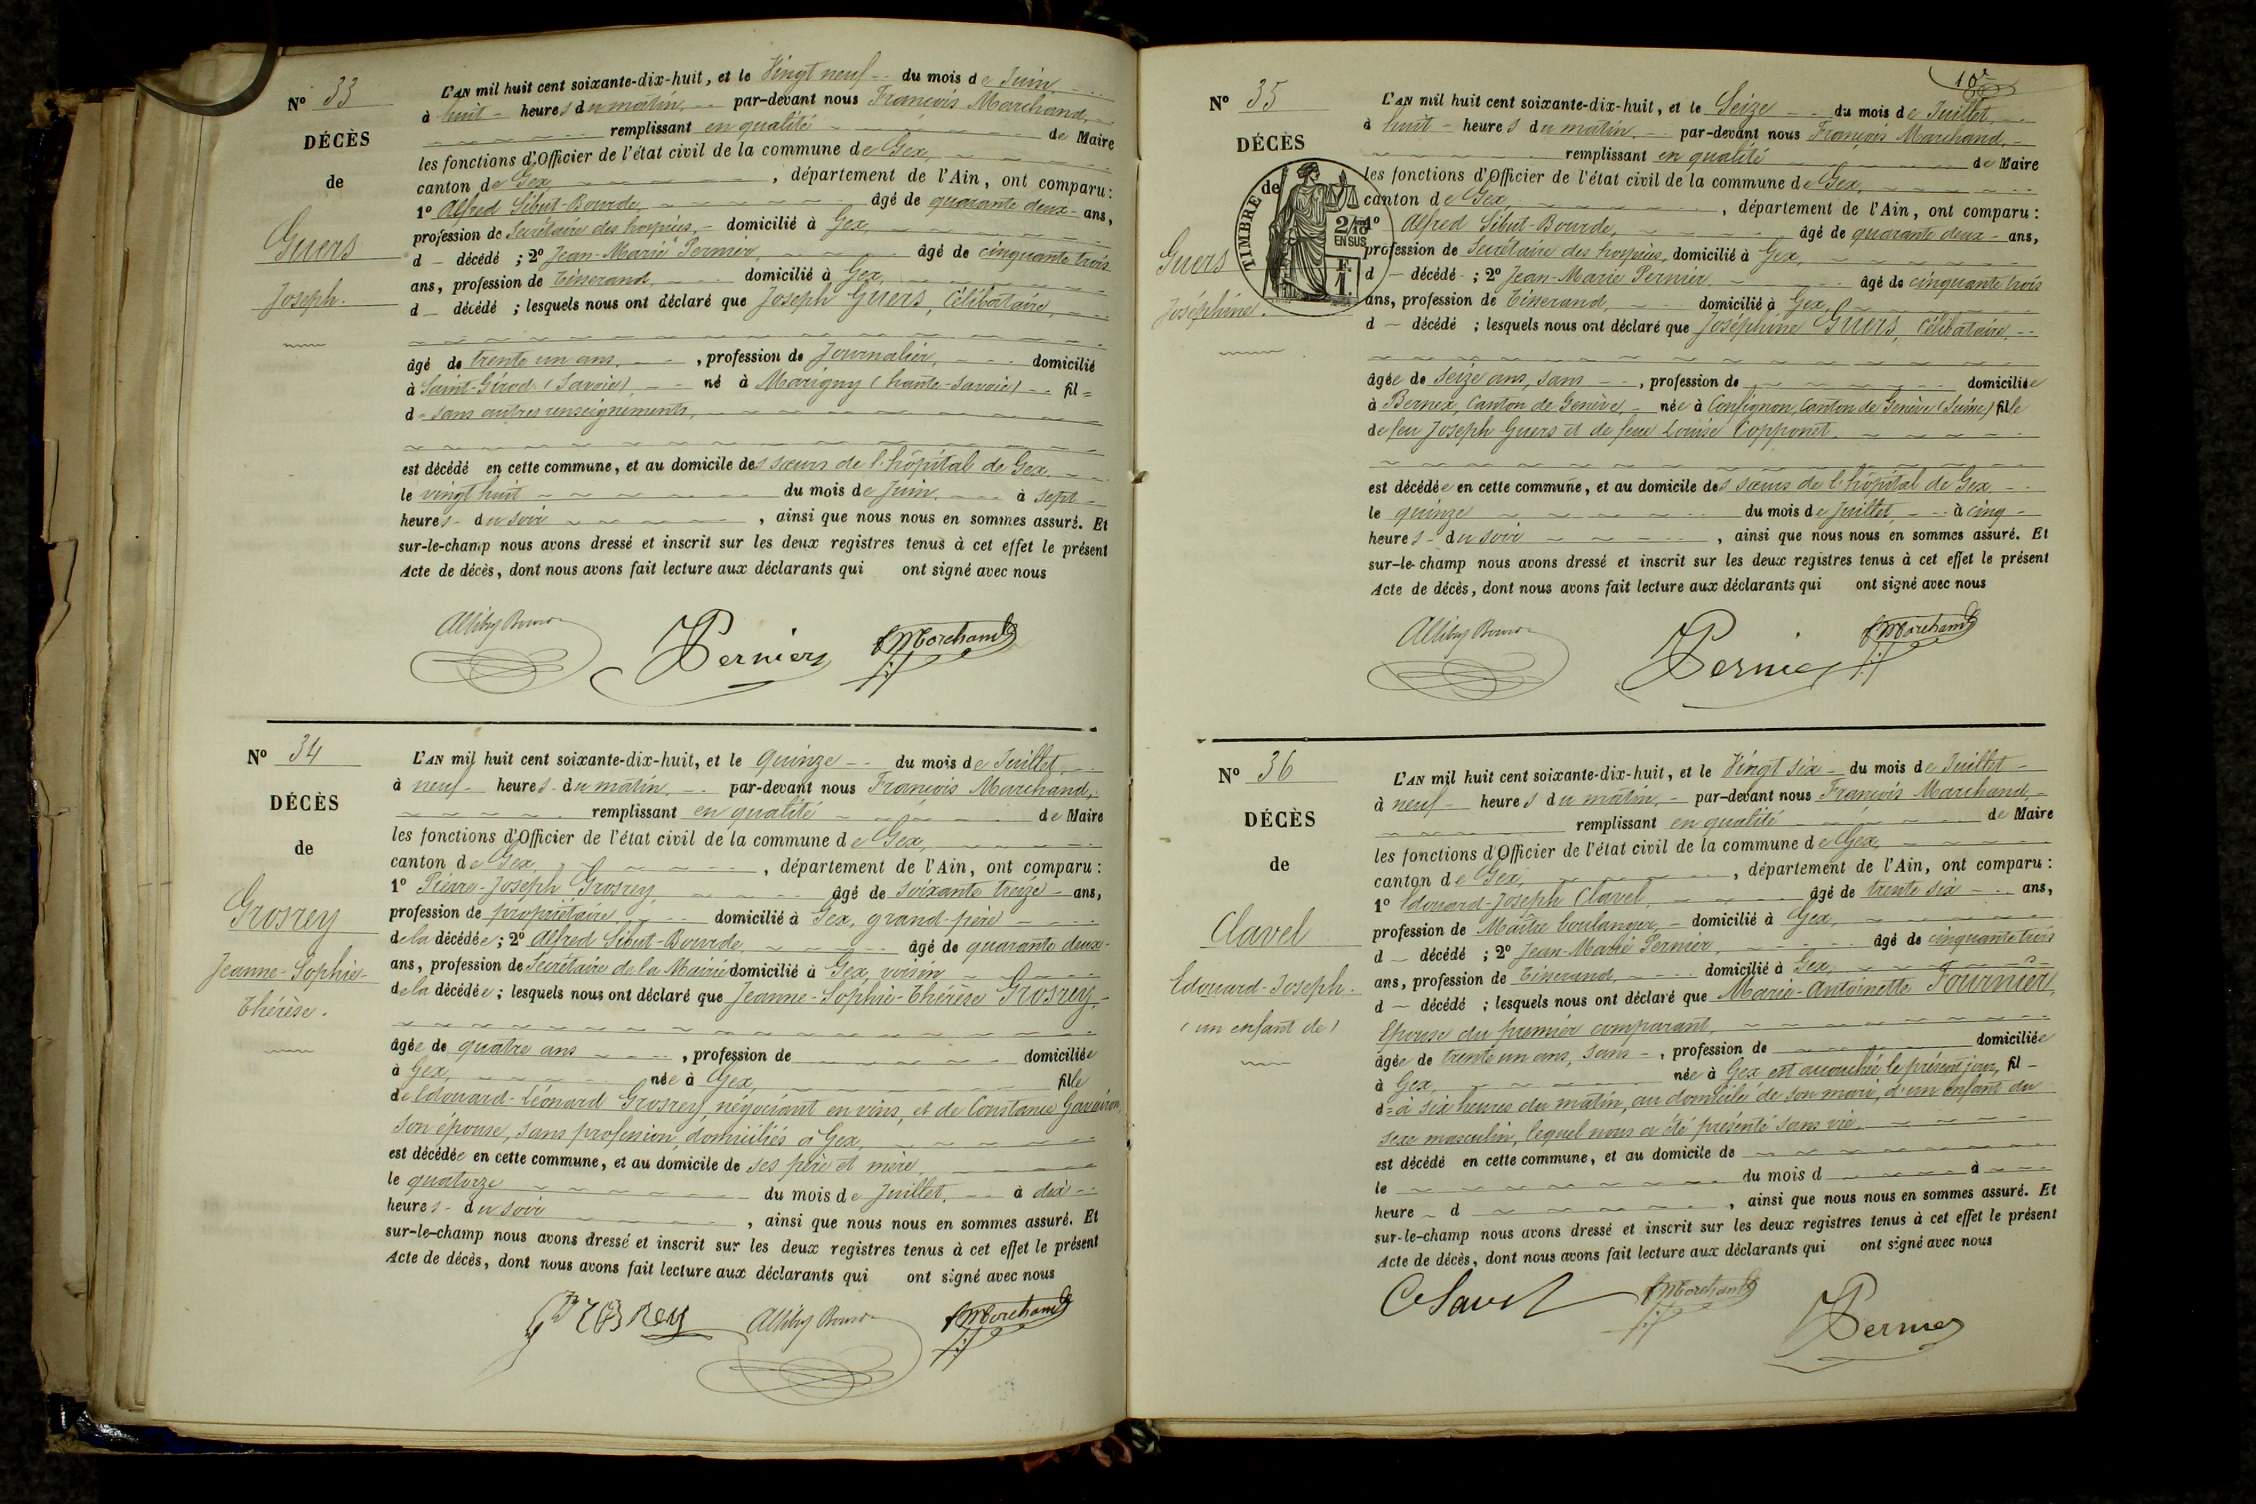 Nº 33
DÉCÈS
de
Guers
Joseph.
L'AN mil huit cent soixante-dix-huit, et le Vingt neuf du mois de Juin,
à huit heures du matin, par-devant nous François Marchand,
remplissant en qualité de Maire
les fonctions d'Officier de l'état civil de la commune de Gex,
canton de Gex, département de l'Ain, ont comparu :
1º Alfred Sibut-Bourde, âgé de quarante deux ans,
profession de Secrétaire des hospices, domicilié à Gex,
d décédé ; 2º Jean-Marie Pernier, âgé de cinquante trois
ans, profession de Tisserand, domicilié à Gex,
d décédé ; lesquels nous ont déclaré que Joseph Guers, Célibataire,
âgé de trente un ans, profession de Journalier, domicilié
à Saint-Girod (Savoie), né à Marigny (haute-savoie) fil
d sans autres renseignements,
est décédé en cette commune, et au domicile des sœurs de l'hôpital de Gex,
le vingt huit du mois de Juin, à sept
heures du soir, ainsi que nous nous en sommes assuré. Et
sur-le-champ nous avons dressé et inscrit sur les deux registres tenus à cet effet le présent
Acte de décès, dont nous avons fait lecture aux déclarants qui ont signé avec nous
Pernier fMarchand
Nº 34
DÉCÈS
de
Grosrey
Jeanne-Sophie-
Thérèse.
L'AN mil huit cent soixante-dix-huit, et le quinze du mois de Juillet,
à neuf heures du matin, par-devant nous François Marchand,
remplissant en qualité de Maire
les fonctions d'Officier de l'état civil de la commune de Gex,
canton de Gex, département de l'Ain, ont comparu :
1º Pierre-Joseph Grosrey, âgé de soixante treize ans,
profession de propriétaire, domicilié à Gex, grand-père
de la décédée ; 2º Alfred Sibut-Bourde, âgé de quarante deux
ans, profession de Secrétaire de la Mairie domicilié à Gex, voisin
de la décédée ; lesquels nous ont déclaré que Jeanne-Sophie-Thérèse Grosrey,
âgée de quatre ans, profession de domiciliée
à Gex, née à Gex, fille
de Edouard-Léonard Grosrey, négociant en vins, et de Constance Gavairon,
son épouse, sans profession, domiciliés à Gex,
est décédée en cette commune, et au domicile de ses père et mère,
le quatorze du mois de Juillet, à dix
heures du soir, ainsi que nous nous en sommes assuré. Et
sur-le-champ nous avons dressé et inscrit sur les deux registres tenus à cet effet le présent
Acte de décès, dont nous avons fait lecture aux déclarants qui ont signé avec nous
Grosrey fMarchand
10e
Nº 35
DÉCÈS
TIMBRE de
2/10
EN SUS
F.
1.
Guers
Joséphine.
L'AN mil huit cent soixante-dix-huit, et le Seize du mois de Juillet,
à huit heures du matin, par-devant nous François Marchand,
remplissant en qualité de Maire
les fonctions d'Officier de l'état civil de la commune de Gex,
canton de Gex, département de l'Ain, ont comparu :
1º Alfred Sibut-Bourde, âgé de quarante deux ans,
profession de Secrétaire des hospices, domicilié à Gex,
d décédé ; 2º Jean-Marie Pernier âgé de cinquante trois
ans, profession de Tisserand, domicilié à Gex,
d décédé ; lesquels nous ont déclaré que Joséphine Guers, Célibataire,
âgée de seize ans, sans, profession de domiciliée
à Bernex, Canton de Genève, née à Confignon, Canton de Genève (Suisse) fille
de feu Joseph Guers et de feue Louise Copponet.
est décédée en cette commune, et au domicile des sœurs de l'hôpital de Gex
le quinze du mois de Juillet à cinq
heures du soir, ainsi que nous nous en sommes assuré. Et
sur-le-champ nous avons dressé et inscrit sur les deux registres tenus à cet effet le présent
Acte de décès, dont nous avons fait lecture aux déclarants qui ont signé avec nous
Pernier fMarchand
Nº 36
DÉCÈS
de
Clavel
Edouard-Joseph.
(un enfant de)
L'AN mil huit cent soixante-dix-huit, et le Vingt six du mois de Juillet
à neuf heures du matin, par-devant nous François Marchand,
remplissant en qualité de Maire
les fonctions d'Officier de l'état civil de la commune de Gex,
canton de Gex, département de l'Ain, ont comparu :
1º Edouard-Joseph Clavel, âgé de trente six ans,
profession de Maître boulanger, domicilié à Gex,
d décédé ; 2º Jean-Marie Pernier, âgé de cinquante trois
ans, profession de Tisserand, domicilié à Gex,
d décédé ; lesquels nous ont déclaré que Marie-Antoinette Fournier,
Epouse du premier comparant,
âgée de trente un ans, sans, profession de domiciliée
à Gex, née à Gex est accouchée le présent jour, fil
d à six heures du matin, au domicile de son mari, d'un enfant du
sexe masculin, lequel nous a été présenté sans vie.
est décédé en cette commune, et au domicile de
le du mois d à
heure d, ainsi que nous nous en sommes assuré. Et
sur-le-champ nous avons dressé et inscrit sur les deux registres tenus à cet effet le présent
Acte de décès, dont nous avons fait lecture aux déclarants qui ont signé avec nous
Clavel fMarchand Pernier